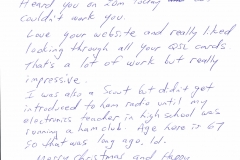 Heard you on 20m today
couldn't work you.
Love your website and really liked
looking through all your QSL cards
that's a lot of work but really
impressive.
I was also a Scout but didn't get
introduced to ham radio until my
electronics teacher in high school was
running a ham club. Age here is 67
so that was long ago, lol.
Merry Christmas and Happy